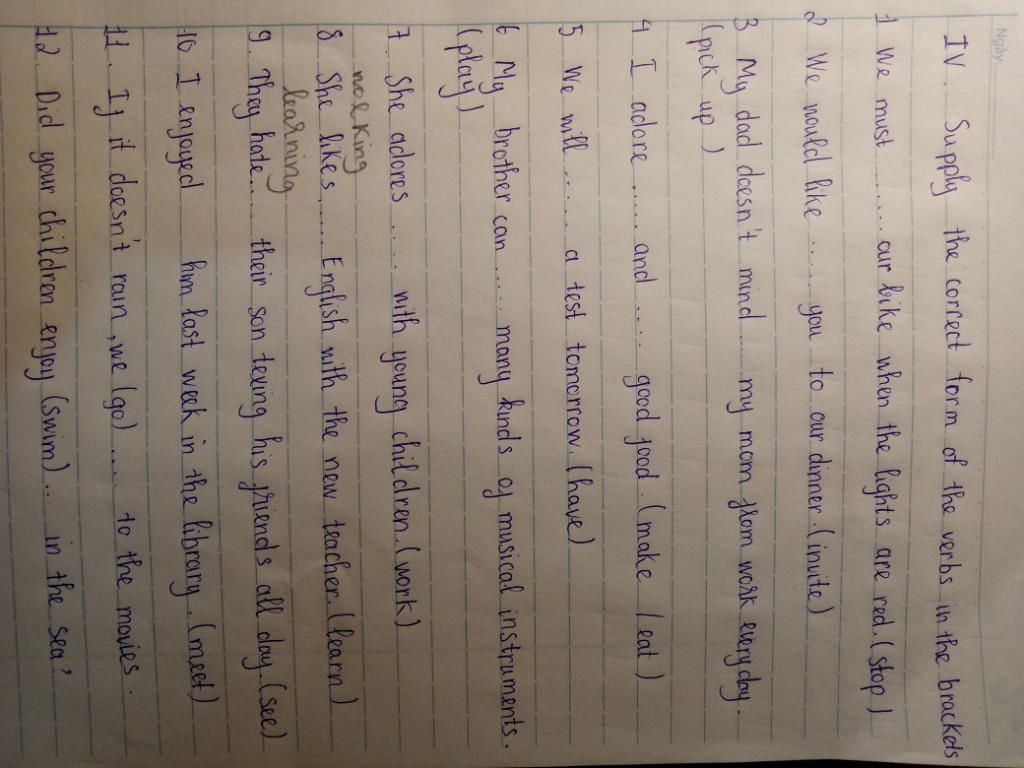 Ngày
IV. Supply the correct form of the verbs in the brackets
1 We must ...... our bike when the lights are red. (stop)
2 We would like ..... you to our dinner. (invite)
3 My dad doesn't mind ..... my mom from work everyday.
(pick up)
4 I adore ..... and ..... good good. (make / eat)
5 We will ...... a test tomorrow. (have)
6 My brother can ..... many kinds of musical instruments.
(play)
7. She adores ..... with young children. (work)
working
8 She likes ..... English with the new teacher. (learn)
learning
9. They hate.... their son texing his friends all day. (see)
10 I enjoyed him last week in the library. (meet)
11. If it doesn't rain, we (go) .... to the movies.
12. Did your children enjoy (swim)... in the sea?